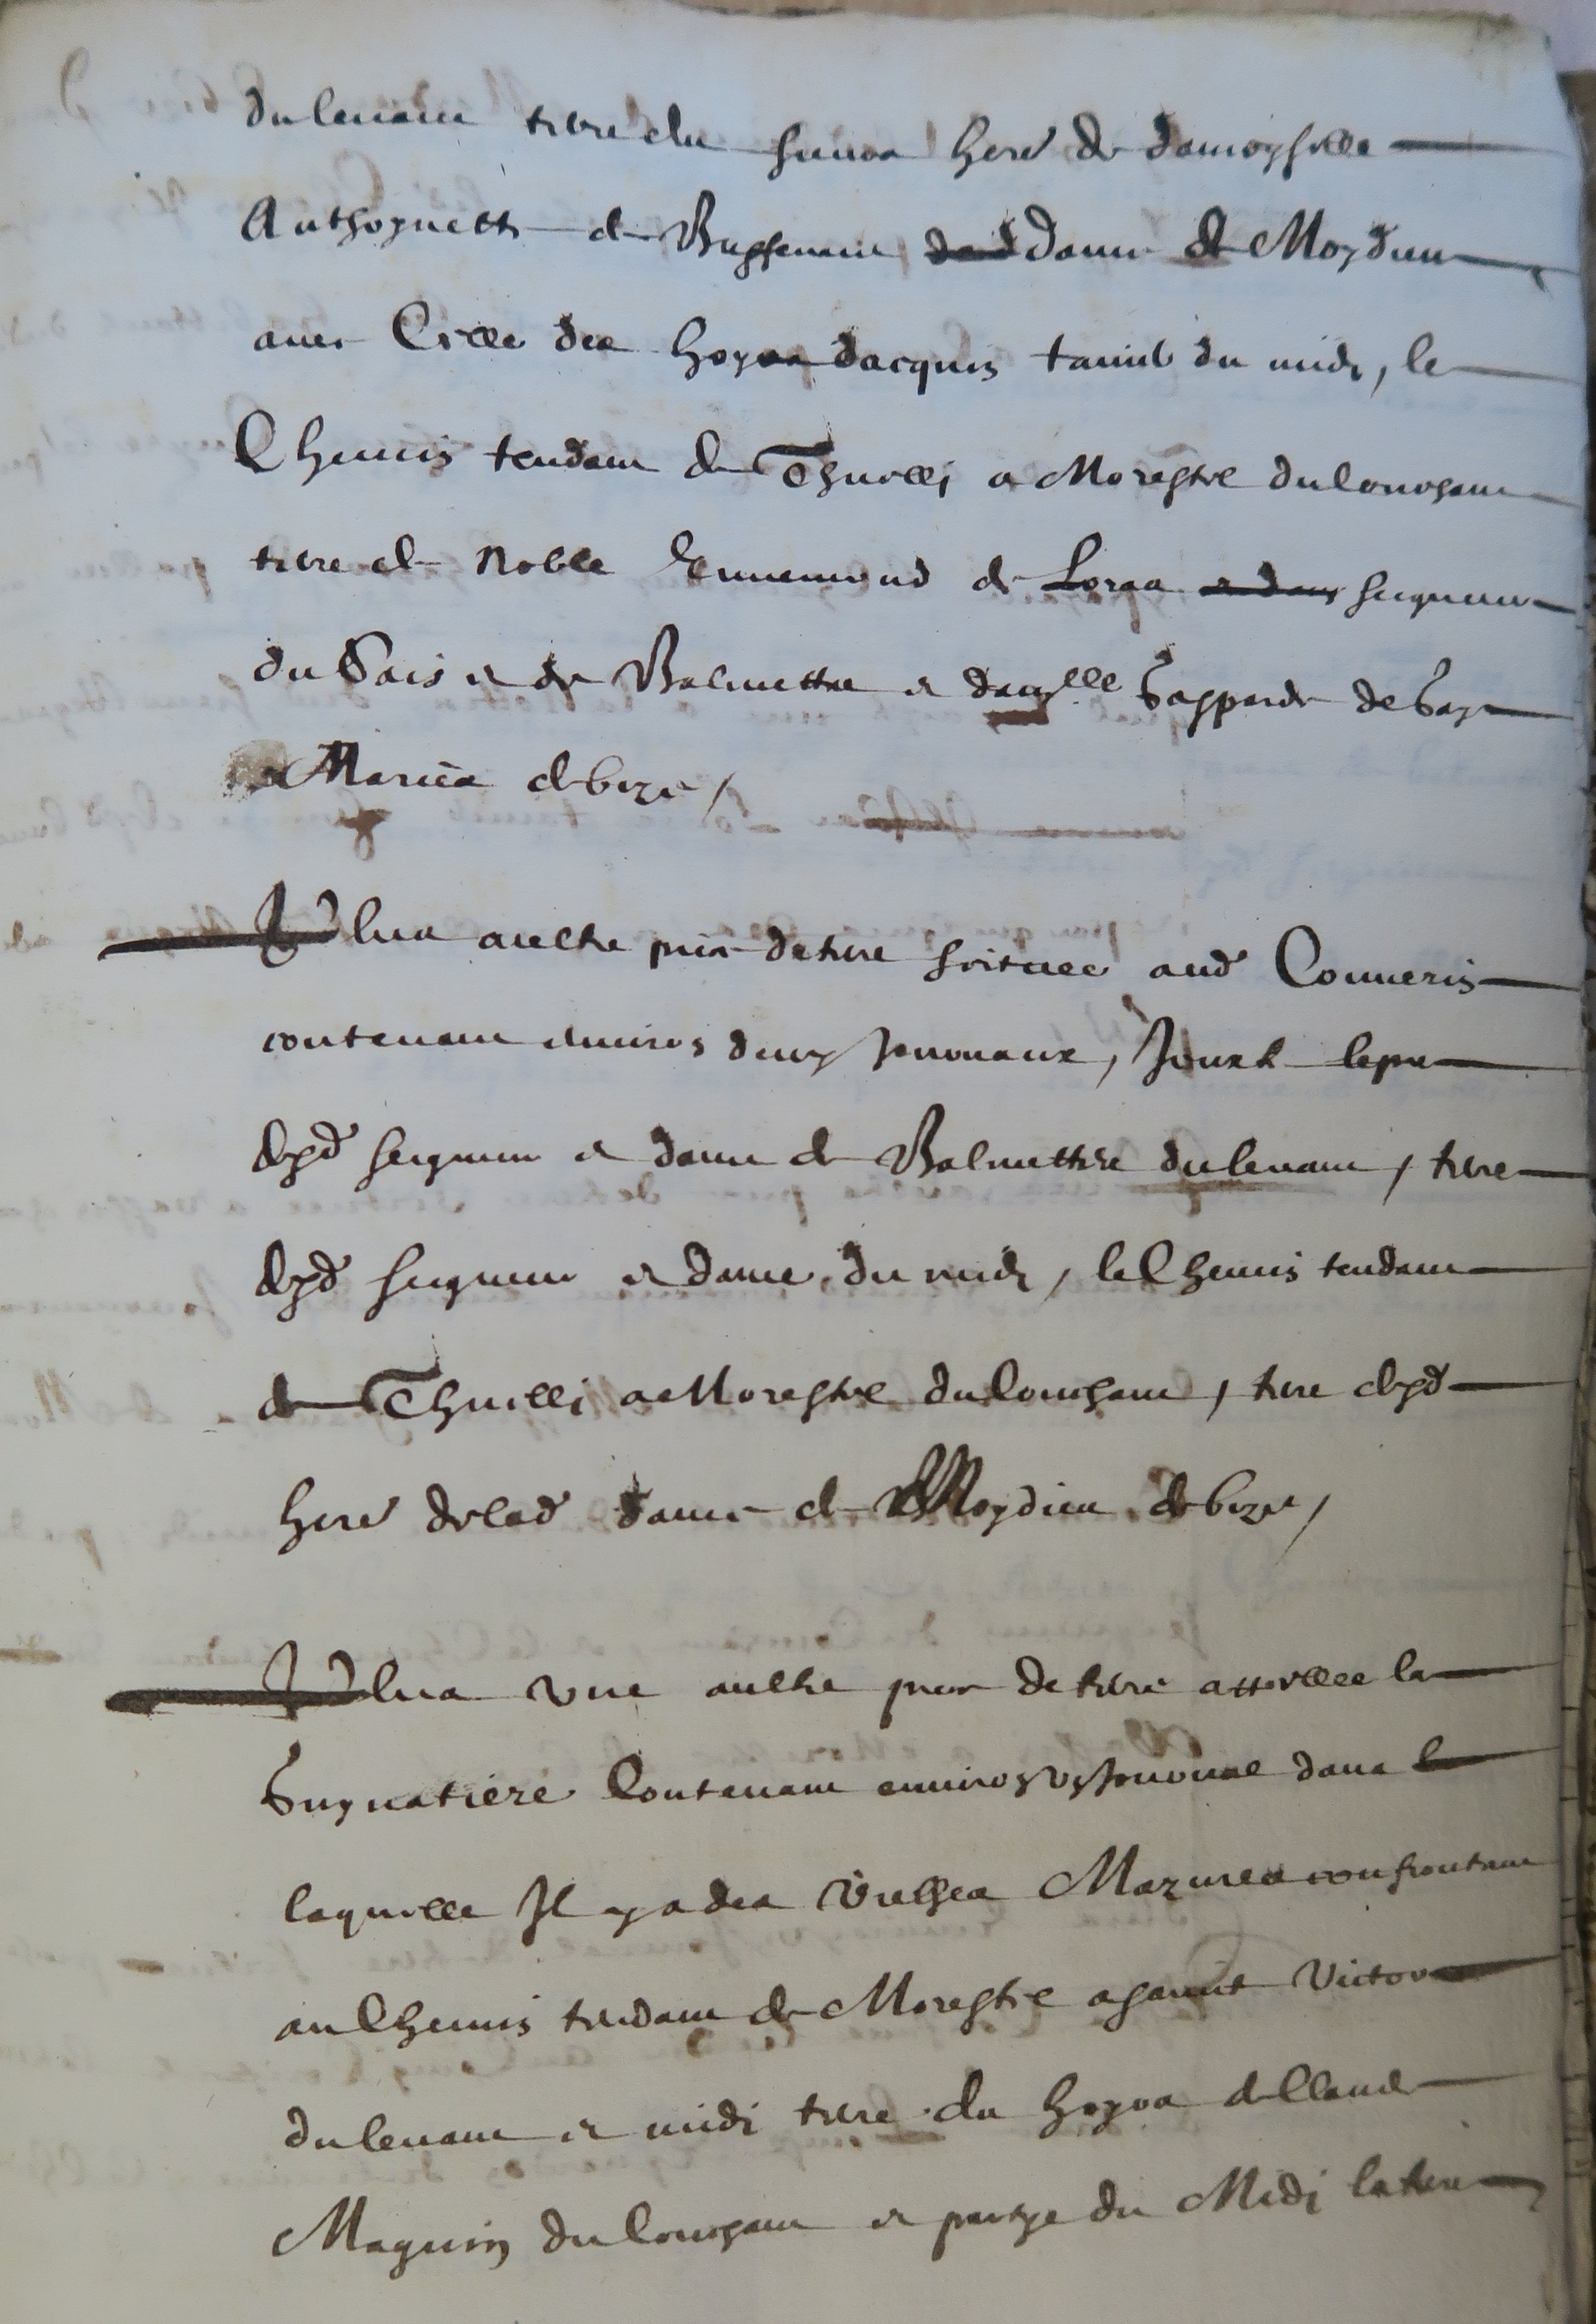 du levant terre du sieur here de damoyselle
Anthoynette de Bussevent dame de Moydieu
avec celle des hoyrs dacquin tamb du midi, le
Chemin tendant de Thuelli a Morestel du couchant
terre de Noble Ennemond de Loras seigneur
du Sais et de Balmettes et damlle Gasparde de Gay
Maries de bize /
Plus aultre piece de terre scituee aud Couverin
contenant environ deux Journaux, Jouxte le pre
desd seigneur et dame de Balmettes du levant, terre
desd seigneur et dame du midi, le Chemin tendant
de Thuelli a Morestel du couchant, terre desd
here de lad dame de Moydieu de bize,
Plus une aultre piece de terre appellee la
Guynatiere Contenant environ Journal dans
laquelle Il y a des vielhes Mazures confrontant
au Chemin tendant de Morestel a saint Victor
du levant et midi terre du hoyrs de Claude
Maguin du couchant et partye du Midi la terre